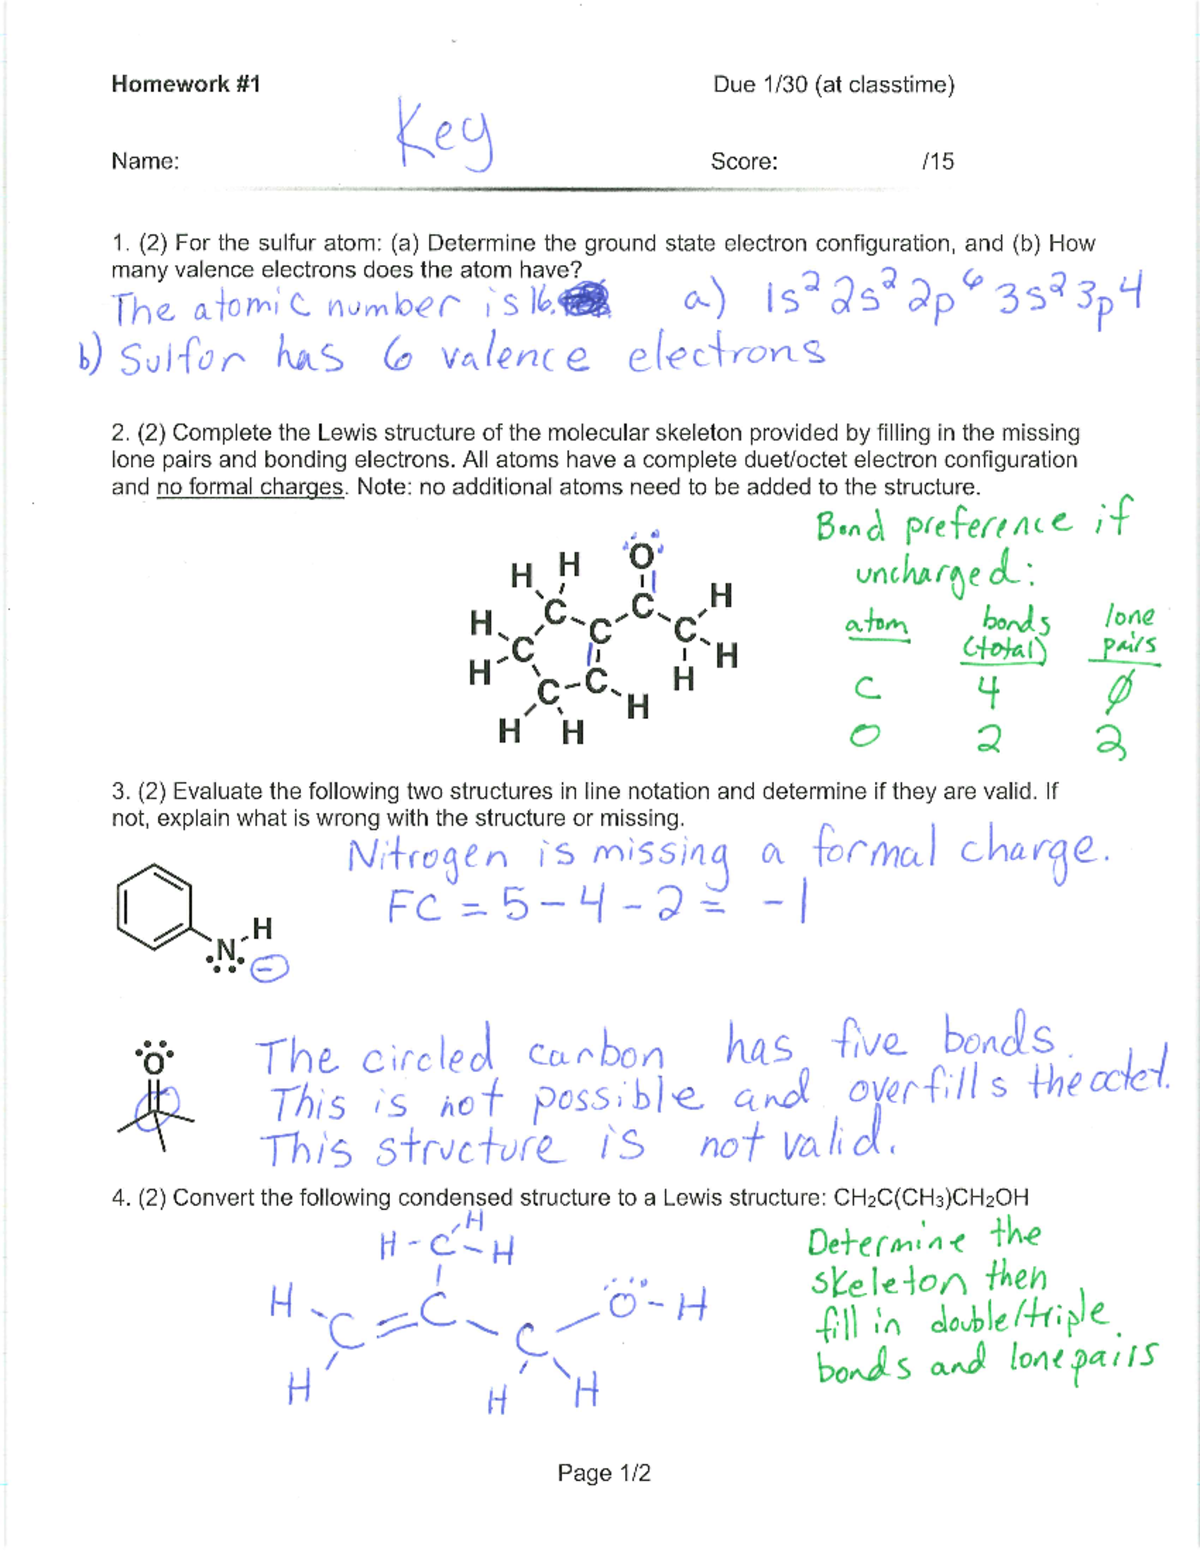 Homework #1
Due 1/30 (at classtime)
Key
Name:
Score: /15
1. (2) For the sulfur atom: (a) Determine the ground state electron configuration, and (b) How
many valence electrons does the atom have?
The atomic number is 16. a) 1s² 2s² 2p⁶ 3s² 3p⁴
b) Sulfor has 6 valence electrons
2. (2) Complete the Lewis structure of the molecular skeleton provided by filling in the missing
lone pairs and bonding electrons. All atoms have a complete duet/octet electron configuration
and no formal charges. Note: no additional atoms need to be added to the structure.
Bond preference if
uncharged:
atom bonds (total) lone pairs
C 4 ∅
O 2 2
H H O
H C C H
H C C C H
C C H
H H H
3. (2) Evaluate the following two structures in line notation and determine if they are valid. If
not, explain what is wrong with the structure or missing.
Nitrogen is missing a formal charge.
FC = 5 - 4 - 2 = -1
N H
O
The circled carbon has five bonds.
This is not possible and overfills the octet.
This structure is not valid.
4. (2) Convert the following condensed structure to a Lewis structure: CH₂C(CH₃)CH₂OH
H
H-C-H
H C=C C O-H
H H H
Determine the
skeleton then
fill in double/triple
bonds and lone pairs
Page 1/2